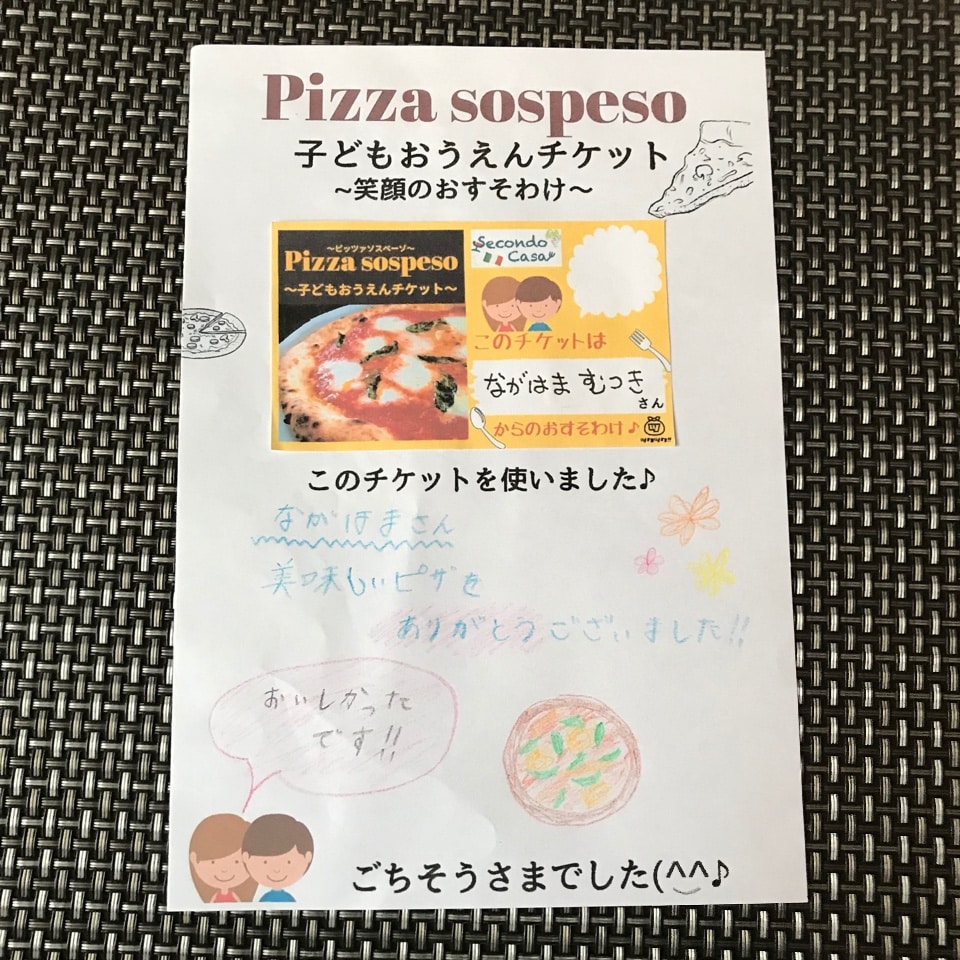 Pizza sospeso
子どもおうえんチケット
~笑顔のおすそわけ~
~ピッツァソスペーゾ~
Pizza sospeso
~子どもおうえんチケット~
Secondo
Casa
このチケットは
ながはま むつき
さん
からのおすそわけ♪
このチケットを使いました♪
ながはまさん
美味しいピザを
ありがとうございました!!
おいしかった
です!!
ごちそうさまでした(^^♪